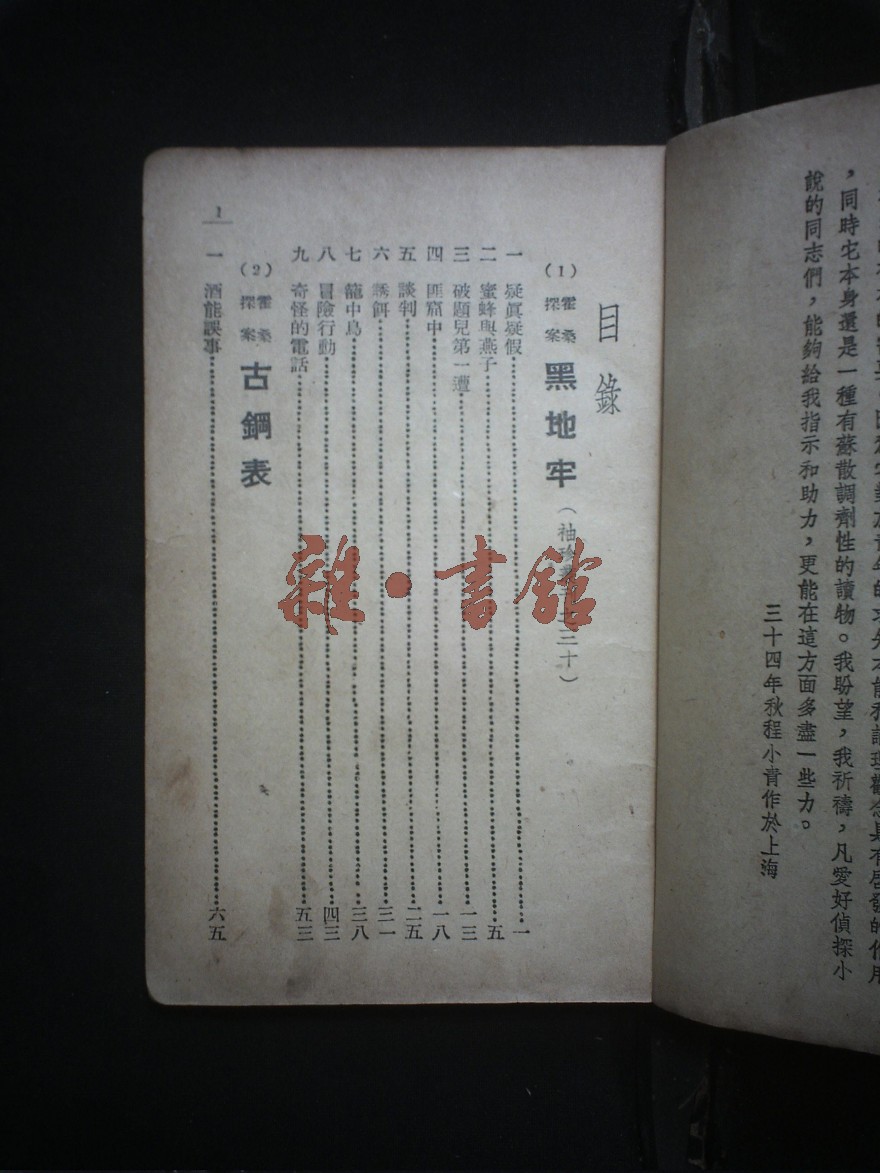 ，同時它本身還是一種有蘇散調劑性的讀物。我盼望，我祈禱，凡愛好偵探小
說的同志們，能夠給我指示和助力，更能在這方面多盡一些力。
三十四年秋程小青作於上海
目錄
(1) 霍桑探案 黑地牢（袖珍 三十）
一 疑眞疑假 一
二 蜜蜂與燕子 五
三 破題兒第一遭 一三
四 匪窟中 一八
五 談判 二五
六 誘餌 三一
七 籠中鳥 三八
八 冒險行動 四三
九 奇怪的電話 五三
(2) 霍桑探案 古鋼表
一 酒能誤事 六五
1
雜·書館